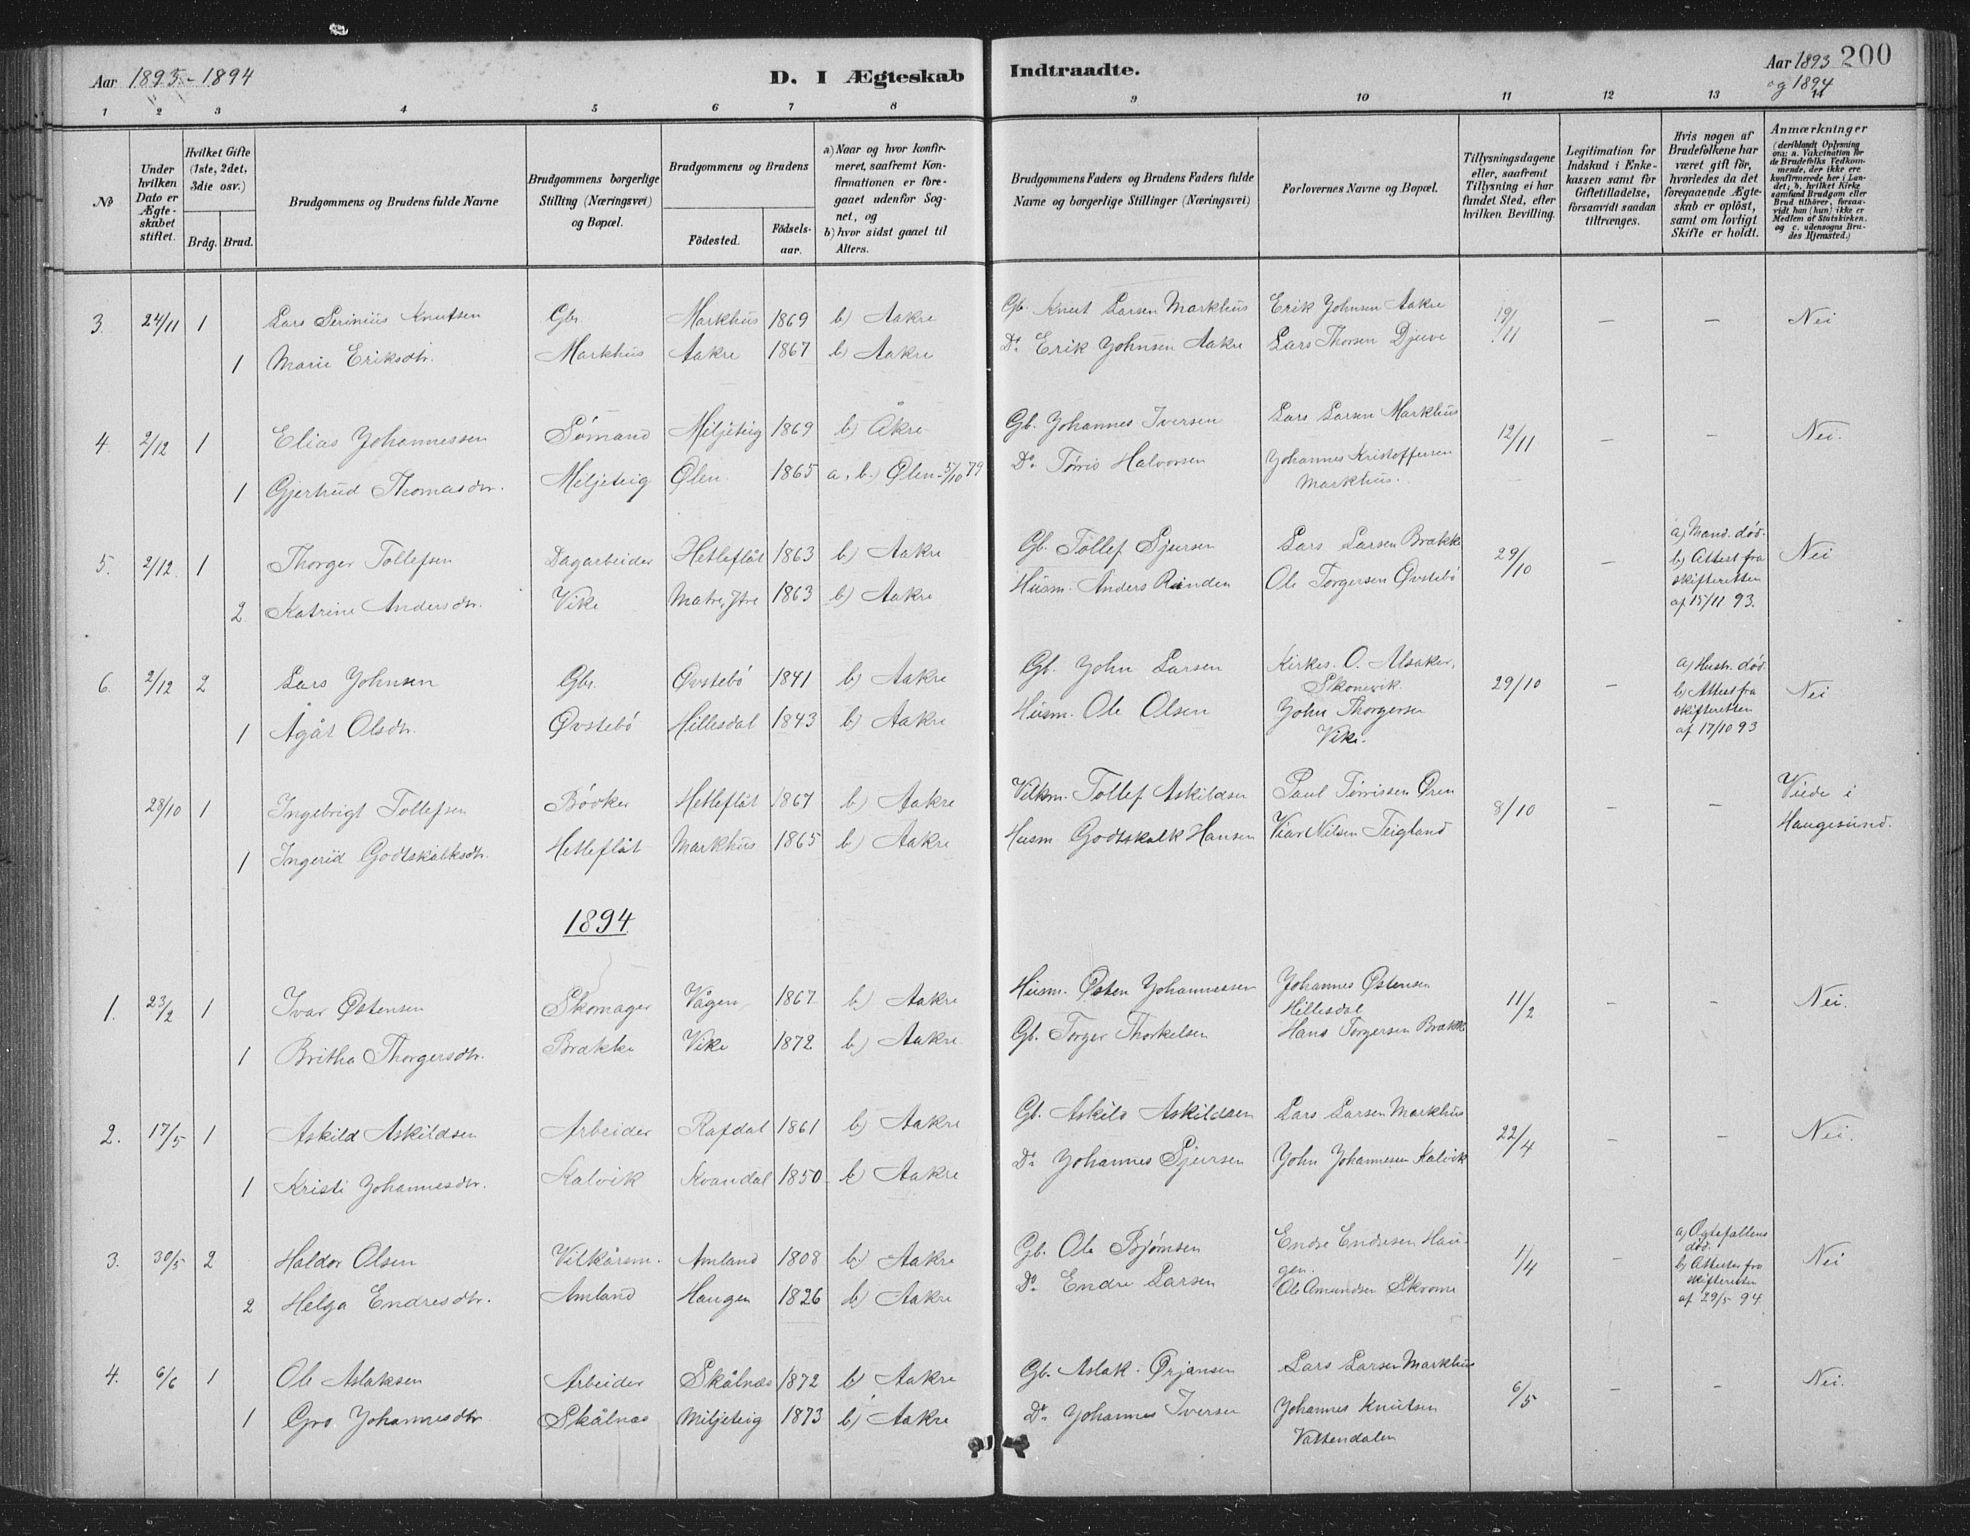 Aar 1893-1894 D. I Ægteskab Indtraadte. Aar 1893 og 1894 200
1 2 3 4 5 6 7 8 9 10 11 12 13 14
No
Under hvilken Dato er Ægteskabet stiftet.
Hvilket Gifte (1ste, 2det, 3die osv.)
Brdg. Brud.
Brudgommens og Brudens fulde Navne
Brudgommens borgerlige Stilling (Næringsvei) og Bopæl.
Brudgommens og Brudens
Födested. Födselsaar.
a) Naar og hvor konfirmeret, saafremt Konfirmationen er foregaaet udenfor Sognet, og
b) hvor sidst gaaet til Alters.
Brudgommens Faders og Brudens Faders fulde Navne og borgerlige Stillinger (Næringsvei)
Forlovernes Navne og Bopæl.
Tillysningsdagene eller, saafremt Tillysning ei har fundet Sted, efter hvilken Bevilling.
Legitimation for Indskud i Enkekassen samt for Giftetilladelse, forsaavidt saadan tiltrænges.
Hvis nogen af Brudefolkene har været gift för, hvorledes da det foregaaende Ægteskab er oplöst, samt om lovligt Skifte er holdt.
Anmærkninger (deriblandt Oplysning om: a. Vakcination for de Brudefolks Vedkommende, der ikke ere konfirmerede her i Landet; b. hvilket Kirkesamfund Brudgom eller Brud tilhörer, forsaavidt han (hun) ikke er Medlem af Statskirken. og c. udensogns Brudes Hjemsted.)
3. 24/11 1 Lars Serinius Knutsen Gbr. Markhus 1869 b) Aakre Gb. Knut Larsen Markhus Erik Johnsen Aakre 19/11 — — Nei
1 Marie Eriksdtr. Markhus Aakre 1867 b) Aakre Do Erik Johnsen Aakre Lars Thorsen Djuve
4. 2/12 1 Elias Johannessen Sømand Miljeteig 1869 b) Åkre Gb. Johannes Iversen Lars Larsen Markhus 12/11 — — Nei.
1 Gjertrud Thomasdtr. Miljeteig Ølen 1865 a, b) Ølen 5/10 79 Do Tørris Halvorsen Johannes Kristoffersen
Markhus.
5. 2/12 1 Thorger Tollefsen Dagarbeider Hetleflåt 1863 b) Aakre Gb. Tollef Sjursen Lars Larsen Brække 29/10 — a) Mand. død. b) Attest fra skifteretten af 15/11 93. Nei
2 Katrine Andersdtr. Vike Matre, Ytre 1863 b) Aakre Husm. Anders Ole Torgersen Øvstebø
6. 2/12 2 Lars Johnsen Gbr. Øvstebø 1841 b) Aakre Gb. John Larsen Kirkes. O. Alsaker, Skonevik. 29/10 — a) Hustr. død. b) Attest fra skifteretten af 17/10 93 Nei
1 Ågåt Olsdtr. Øvstebø Hillesdal 1843 b) Aakre Husm. Ole Olsen John Thorgersen
Vike.
28/10 1 Ingebrigt Tollefsen Bødker Hetleflåt 1867 b) Aakre Vilkm. Tollef Askildsen Paul Tørrissen Øren 8/10 — — Viede i Haugesund.
1 Ingerid Godtskalksdtr. Hetleflåt Markhus 1865 b) Aakre Husm Godtskalk Hansen Nilsen Teigland
1894
1. 23/2 1 Ivar Østensen Skomager Vågen 1867 b) Aakre Husm. Østen Johannessen Johannes Østensen Hillesdal 11/2 — — Nei.
1 Britha Thorgersdtr. Brække Vike 1872 b) Aakre Gb. Torger Thorkelsen Hans Torgersen Brække
2. 17/5 1 Askild Askildsen Arbeider Rafdal 1861 b) Aakre Gb. Askild Askildsen Lars Larsen Markhus 22/4 — — Nei.
1 Kristi Johannesdtr. Kalvik Kvandal 1850 b) Aakre Do Johannes Sjursen John Johannesen Kalvik
3. 30/5 2 Haldor Olsen Vilkårsm. Amland 1808 b) Aakre Gb. Ole Bjørnsen Endre Endresen Haugen. 1/4 — a) Ægtefællens død. b) Attester fra skifteretten af 29/5 94. Nei
2 Helga Endresdtr. Amland Haugen 1826 b) Aakre Do Endre Larsen Ole Amundsen Skromme
4. 6/6 1 Ole Aslaksen Arbeider Skålnæs 1872 b) Aakre Gb. Aslak Ørjansen Lars Larsen Markhus 6/5 — — Nei.
1 Gro Johannesdtr. Skålnæs Miljeteig 1873 b) Aakre Do Johannes Iversen Johannes Knutsen
Vattendalen